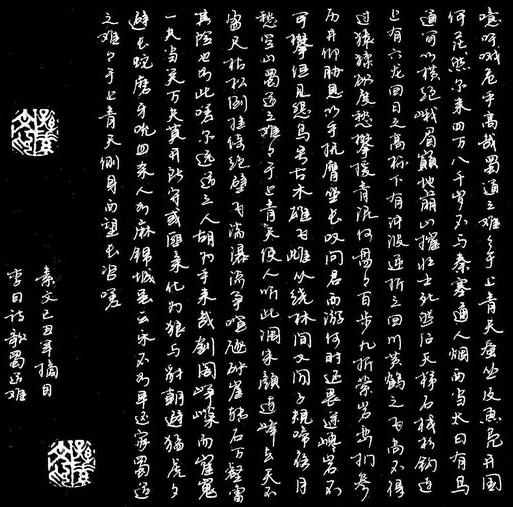 噫吁嚱危乎高哉蜀道之难难于上青天蚕丛及鱼凫开国
何茫然尔来四万八千岁不与秦塞通人烟西当太白有鸟
道可以横绝峨眉巅地崩山摧壮士死然后天梯石栈相钩连
上有六龙回日之高标下有冲波逆折之回川黄鹤之飞尚不得
过猿猱欲度愁攀援青泥何盘盘百步九折萦岩峦扪参
历井仰胁息以手抚膺坐长叹问君西游何时还畏途巉岩不
可攀但见悲鸟号古木雄飞雌从绕林间又闻子规啼夜月
愁空山蜀道之难难于上青天使人听此凋朱颜连峰去天不
盈尺枯松倒挂倚绝壁飞湍瀑流争喧豗砯崖转石万壑雷
其险也如此嗟尔远道之人胡为乎来哉剑阁峥嵘而崔嵬
一夫当关万夫莫开所守或匪亲化为狼与豺朝避猛虎夕
避长蛇磨牙吮血杀人如麻锦城虽云乐不如早还家蜀道
之难难于上青天侧身西望长咨嗟
素文己丑年摘自
李白诗歌蜀道难